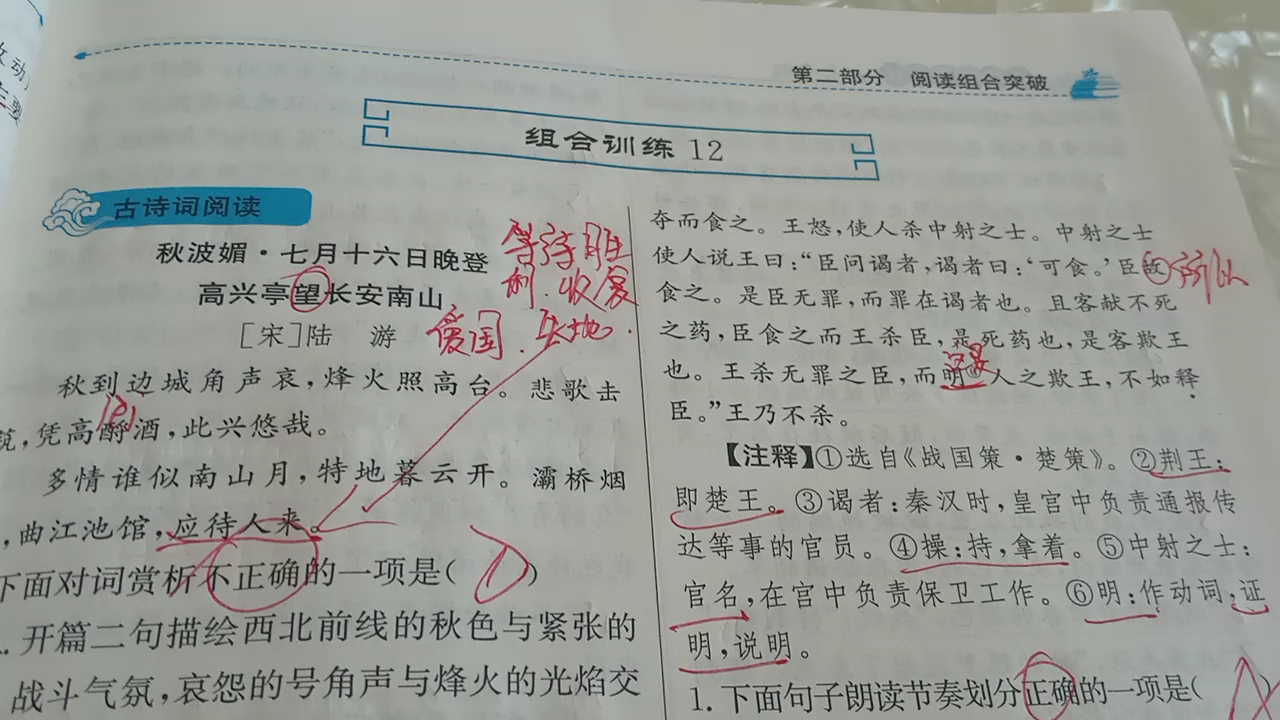 第二部分 阅读组合突破
组合训练 12
古诗词阅读
秋波媚·七月十六日晚登
高兴亭望长安南山
[宋]陆 游
等待胜
利.收复
爱国.失地.
秋到边城角声哀,烽火照高台。悲歌击
筑,凭高酹酒,此兴悠哉。
多情谁似南山月,特地暮云开。灞桥烟
,曲江池馆,应待人来。
下面对词赏析不正确的一项是( D )
.开篇二句描绘西北前线的秋色与紧张的
战斗气氛,哀怨的号角声与烽火的光焰交
夺而食之。王怒,使人杀中射之士。中射之士
使人说王曰:“臣问谒者,谒者曰:‘可食。’臣故
所以
食之。是臣无罪,而罪在谒者也。且客献不死
之药,臣食之而王杀臣,是死药也,是客欺王
也。王杀无罪之臣,而明⑥人之欺王,不如释
臣。”王乃不杀。
【注释】①选自《战国策·楚策》。②荆王:
即楚王。③谒者:秦汉时,皇宫中负责通报传
达等事的官员。④操:持,拿着。⑤中射之士:
官名,在宫中负责保卫工作。⑥明:作动词,证
明,说明。
1.下面句子朗读节奏划分正确的一项是( A )